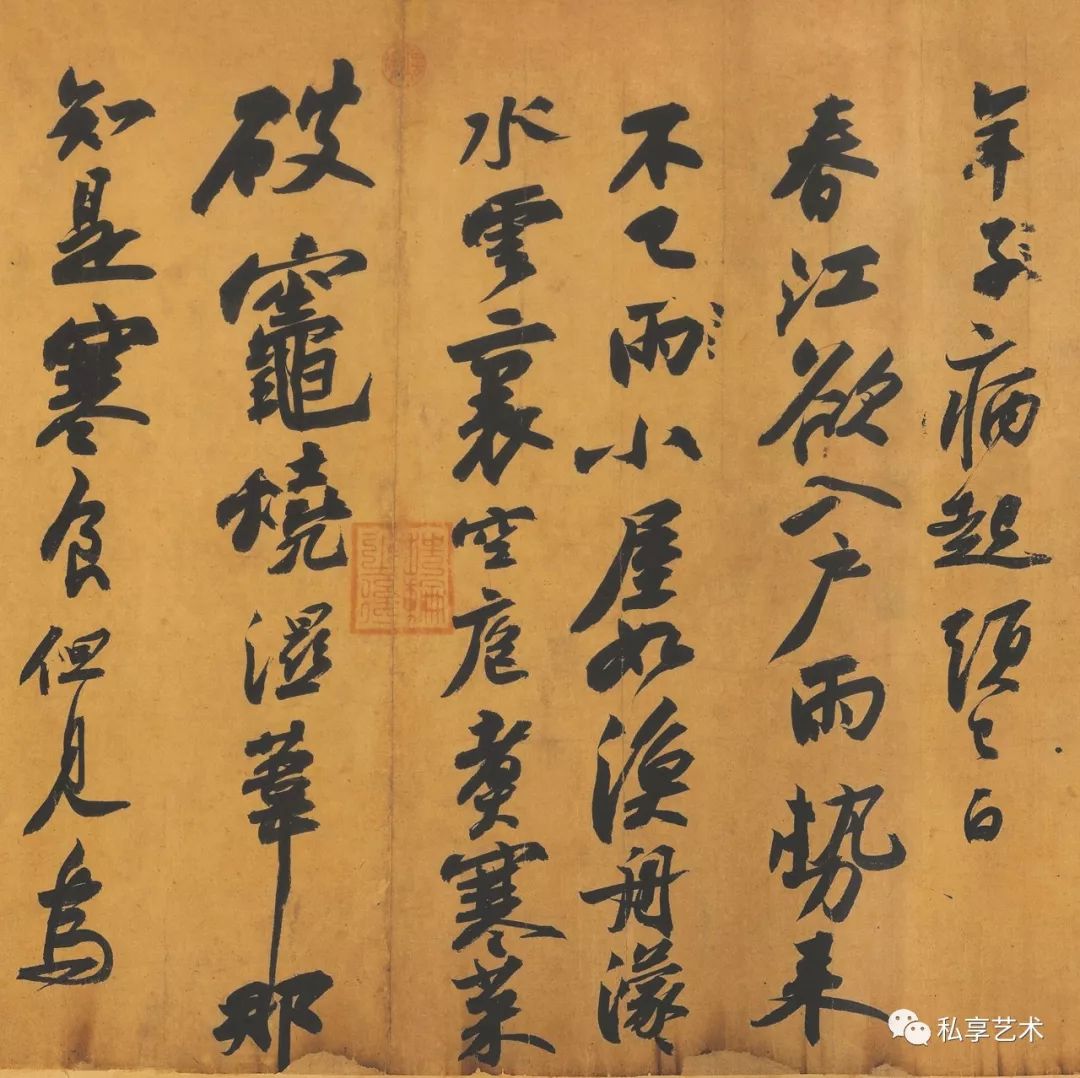 年子病起頭已白
春江欲入戶雨勢來
不已雨小屋如漁舟濛〻
水雲裏空庖煮寒菜
破竈燒濕葦那
知是寒食但見烏
私享艺术